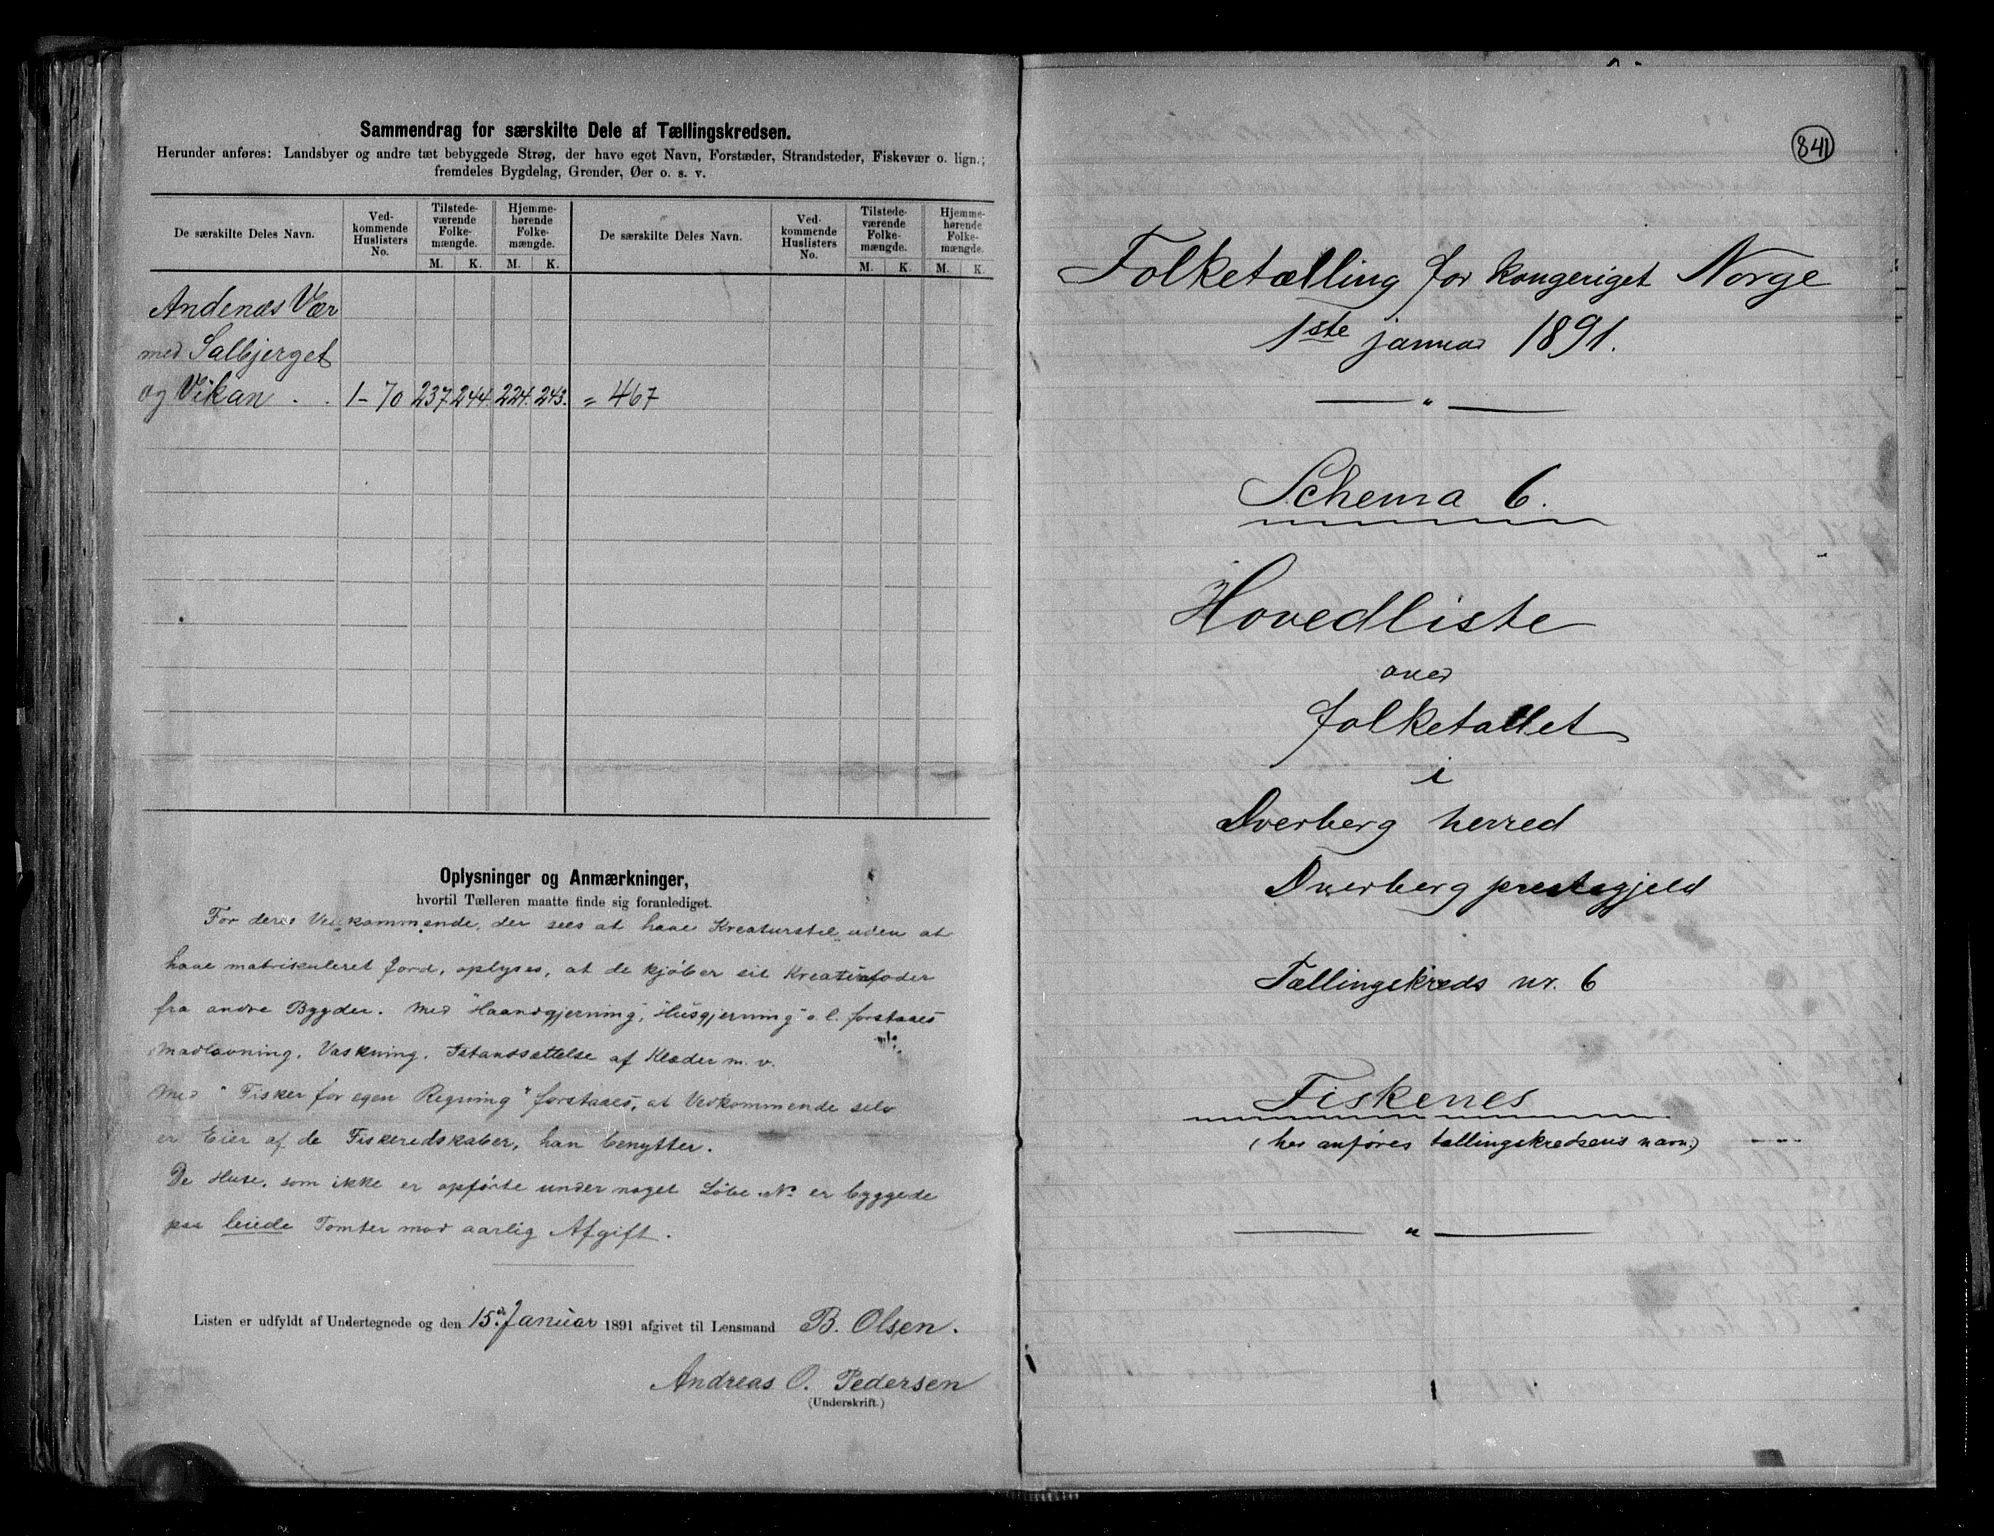 Sammendrag for særskilte Dele af Tællingskredsen.
Herunder anføres: Landsbyer og andre tæt bebyggede Strøg, der have eget Navn, Forstæder, Strandsteder, Fiskevær o. lign.;
fremdeles Bygdelag, Grender, Øer o. s. v.
De særskilte Deles Navn.
Ved-
kommende
Huslisters
No.
Tilstede-
værende
Folke-
mængde.
Hjemme-
hørende
Folke-
mængde.
M. K. M. K.
De særskilte Deles Navn.
Ved-
kommende
Huslisters
No.
Tilstede-
værende
Folke-
mængde.
Hjemme-
hørende
Folke-
mængde.
M. K. M. K
Andenæs Vær
med Salbjerget
og Vikan . . 1-70 237 244 224. 243. = 467
Oplysninger og Anmærkninger,
hvortil Tælleren maatte finde sig foranlediget.
For deres Vedkommende, der sees at have Kreaturstel uden at
have matrikuleret Jord, oplyses, at de kjøber sit Kreaturfoder
fra andre Bygder. Med "Haandgjerning", "Husgjerning" o. l. forstaaes
Madlavning, Vaskning, Istandsættelse af Klæder m. v.
Med "Fisker for egen Regning" forstaaes, at Vedkommende selv
er Eier af de Fiskeredskaber, han benytter.
De Huse, som ikke er opførte under noget Løbe No er byggede
paa leiede Tomter mod aarlig Afgift.
Listen er udfyldt af Undertegnede og den 15de Januar 1891 afgivet til Lensmand B. Olsen.
Andreas O. Pedersen
(Underskrift.)
841
Folketælling for kongeriget Norge
1ste januar 1891.
"
Schema 6.
Hovedliste
over
folketallet
i
Dverberg herred
Dverberg prestegjeld
Tællingskreds nr. 6
Fiskenes
(her anføres tællingskredsens navn.)
"